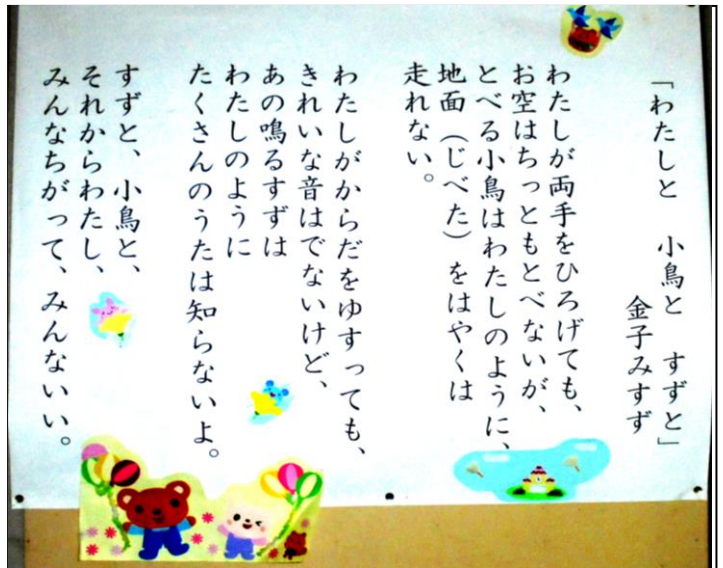 「わたしと　小鳥と　すずと」
金子みすず
わたしが両手をひろげても、
お空はちっともとべないが、
とべる小鳥はわたしのように、
地面（じべた）をはやくは
走れない。
わたしがからだをゆすっても、
きれいな音はでないけど、
あの鳴るすずは
わたしのように
たくさんのうたは知らないよ。
すずと、小鳥と、
それからわたし、
みんなちがって、みんないい。